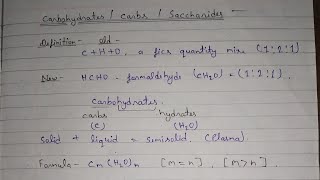 Carbohydrates / Carbs / Saccharides
Definition - Old -
C + H + O, a fics quantity mixe (1:2:1)
New - HCHO - formaldehyde (CH2O) = (1:2:1)
Carbohydrates
carbs hydrates
(C) (H2O)
Solid + liquid = Semisolid (Plasma)
Formula - Cm (H2O)n [m = n], [m > n]